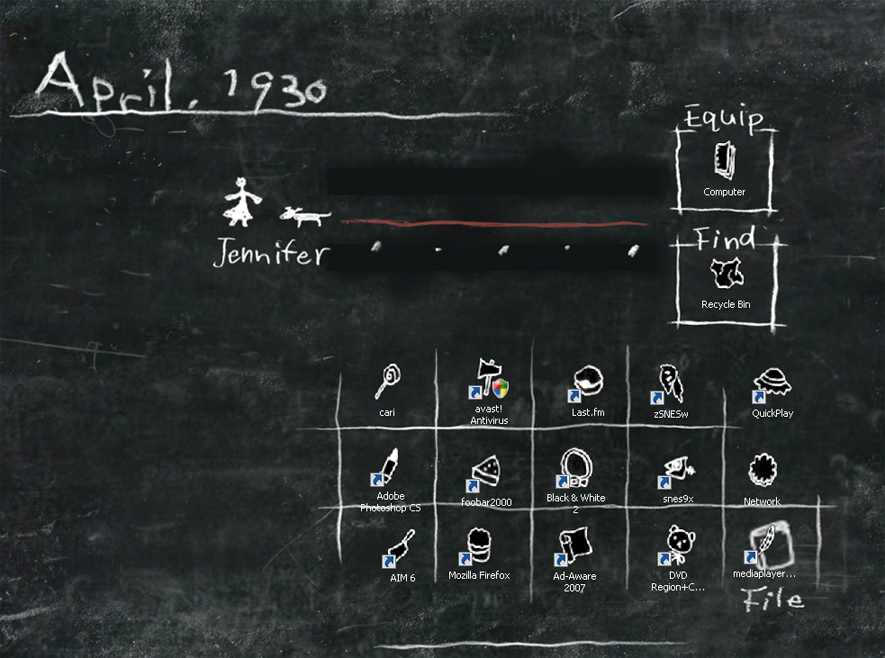 April. 1930
Equip
Computer
Jennifer
Find
Recycle Bin
cari
avast!
Antivirus
Last.fm
zSNESw
QuickPlay
Adobe
Photoshop CS
foobar2000
Black & White
2
snes9x
Network
AIM 6
Mozilla Firefox
Ad-Aware
2007
DVD
Region+C...
mediaplayer...
File